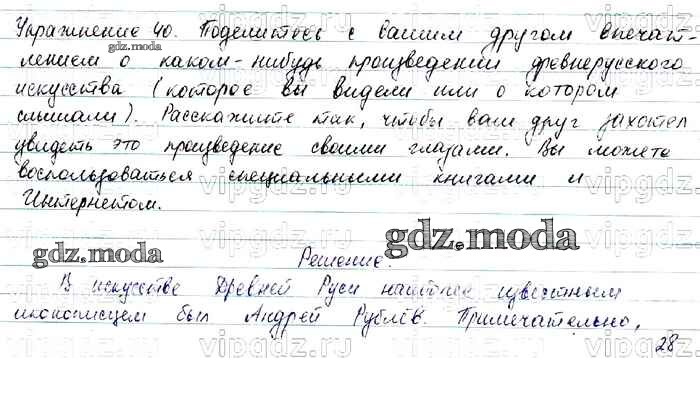 Упражнение 40. Поделитесь с вашим другом впечат-
gdz.moda
лением о каком-нибудь произведении древнерусского
искусства (которое вы видели или о котором
слышали). Расскажите так, чтобы ваш друг захотел
увидеть это произведение своими глазами. Вы можете
воспользоваться специальными книгами и
Интернетом.
gdz.moda
gdz.moda
Решение.
В искусстве Древней Руси наиболее известным
иконописцем был Андрей Рублёв. Примечательно,
28
vipgdz.ru